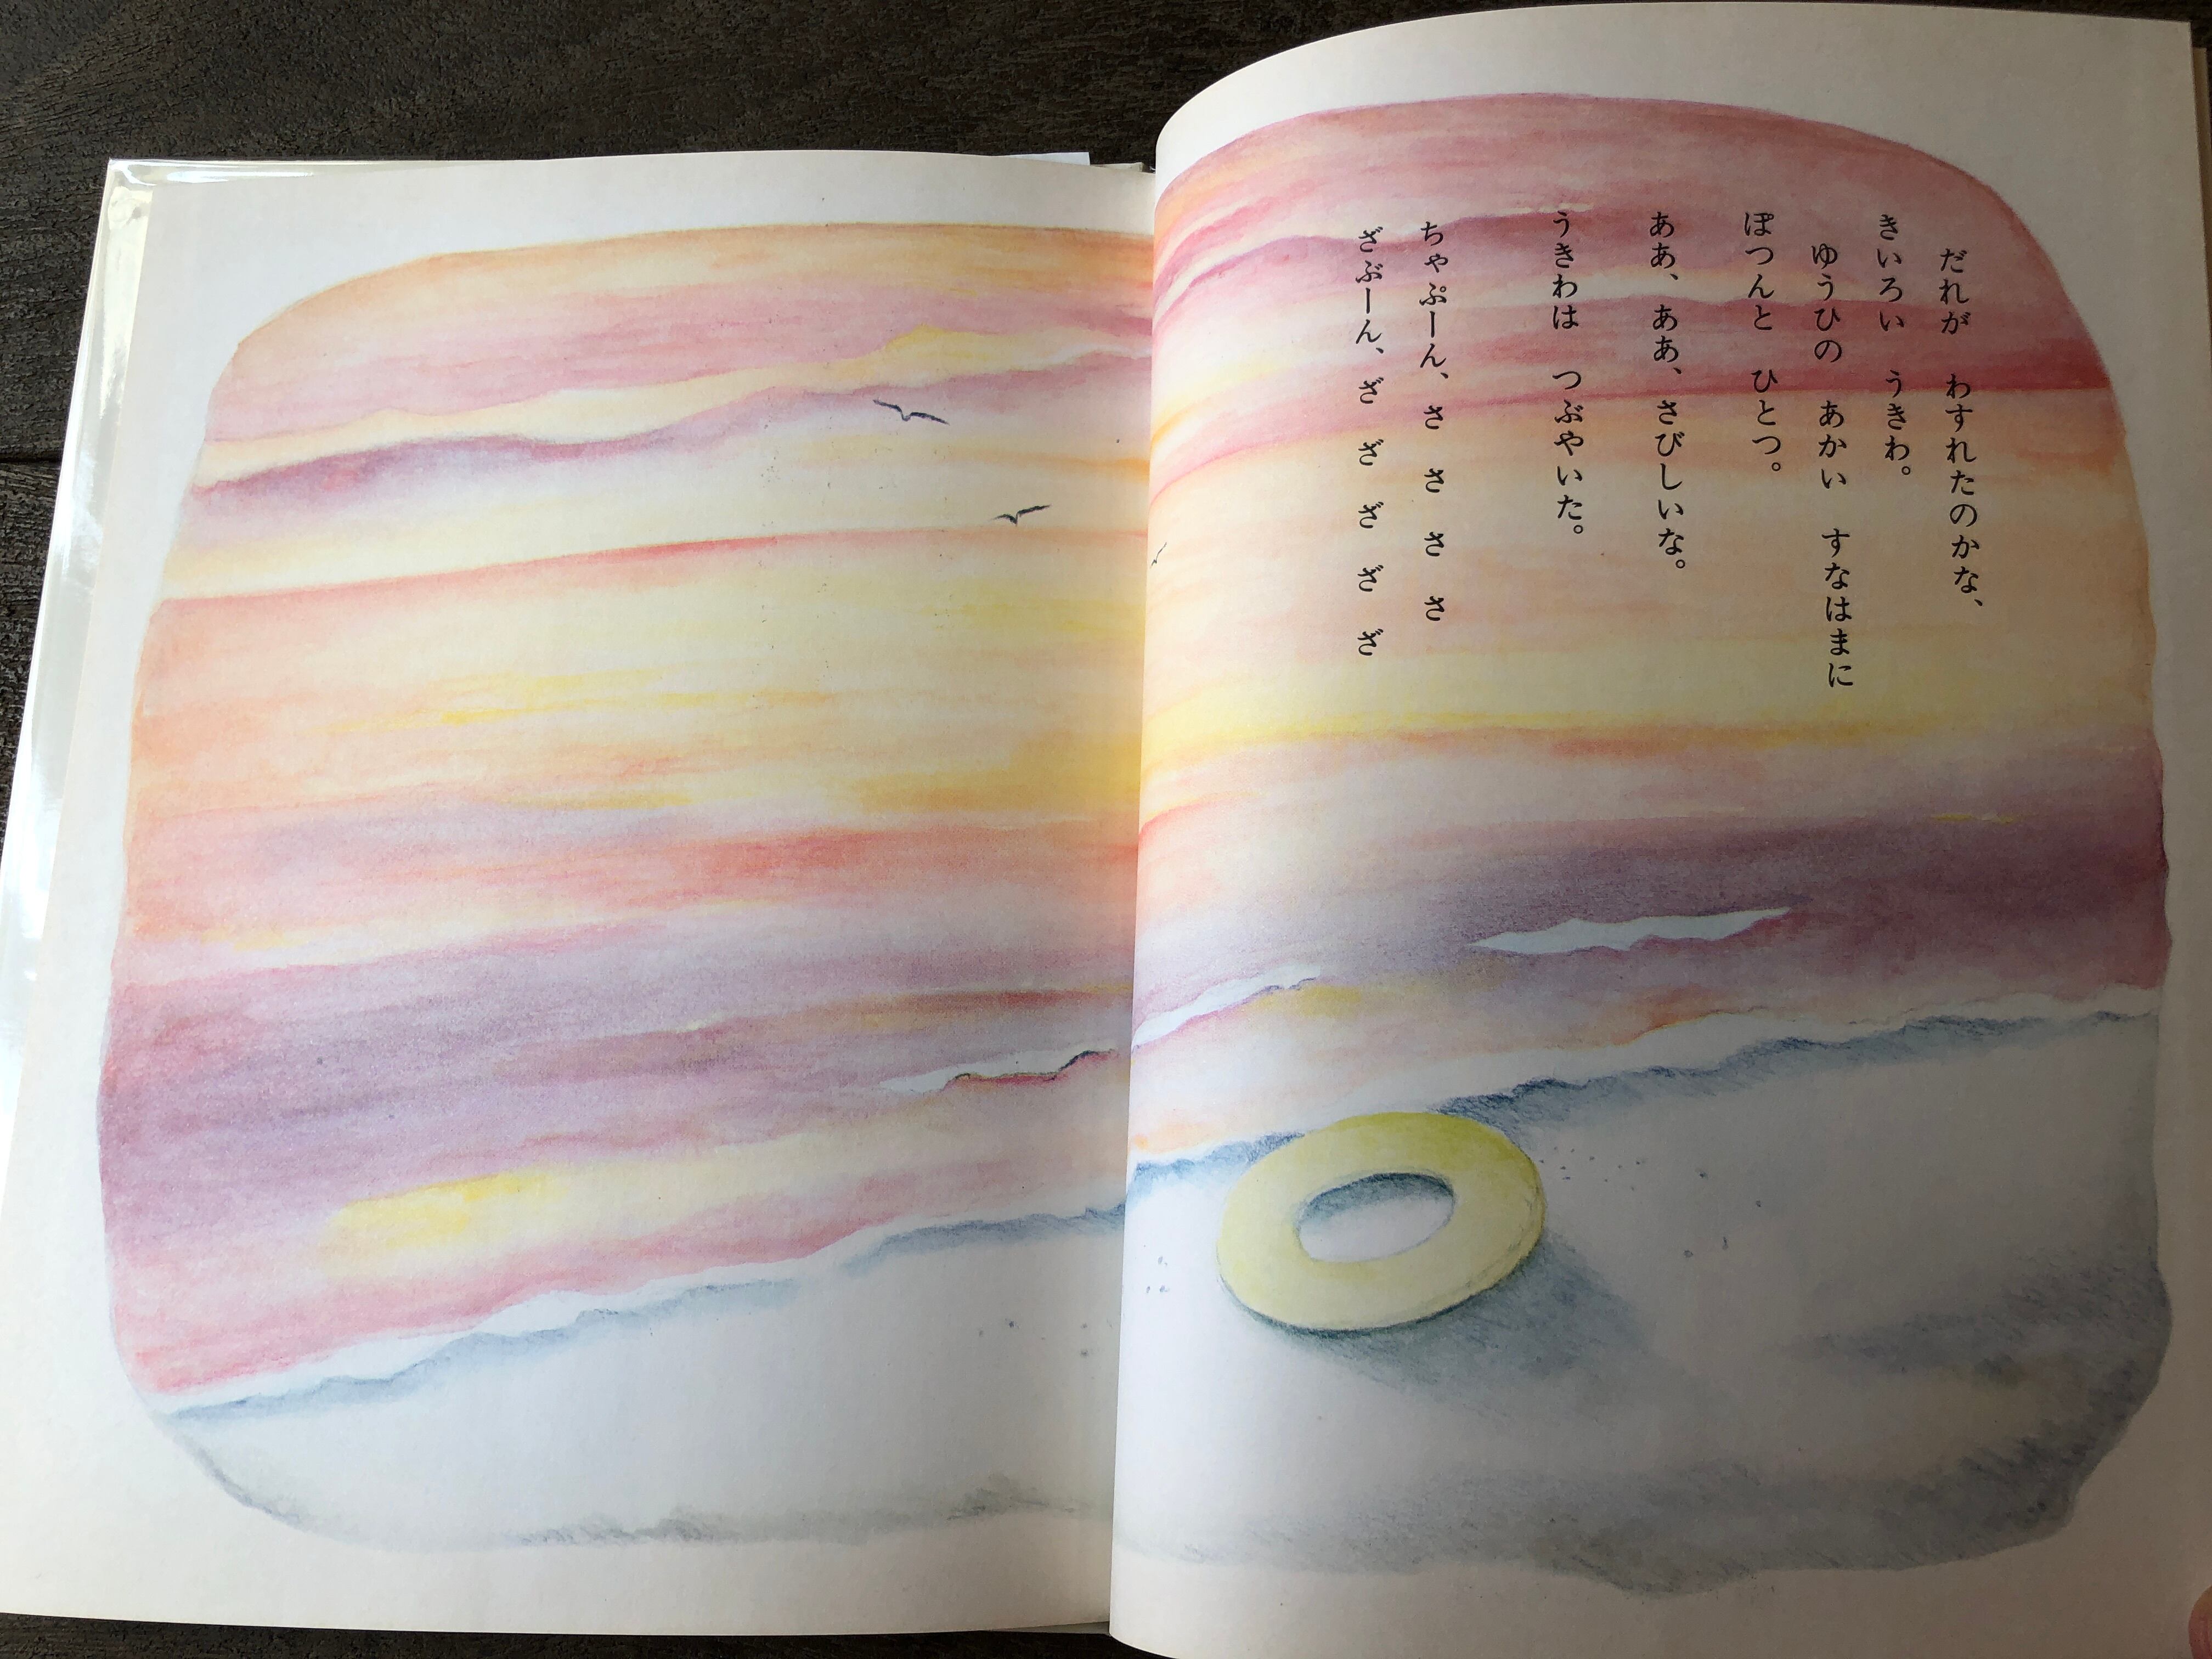 だれが　わすれたのかな、
きいろい　うきわ。
ゆうひの　あかい　すなはまに
ぽつんと　ひとつ。
ああ、ああ、さびしいな。
うきわは　つぶやいた。
ちゃぷーん、さ　さ　さ　さ
ざぶーん、ざ　ざ　ざ　ざ　ざ